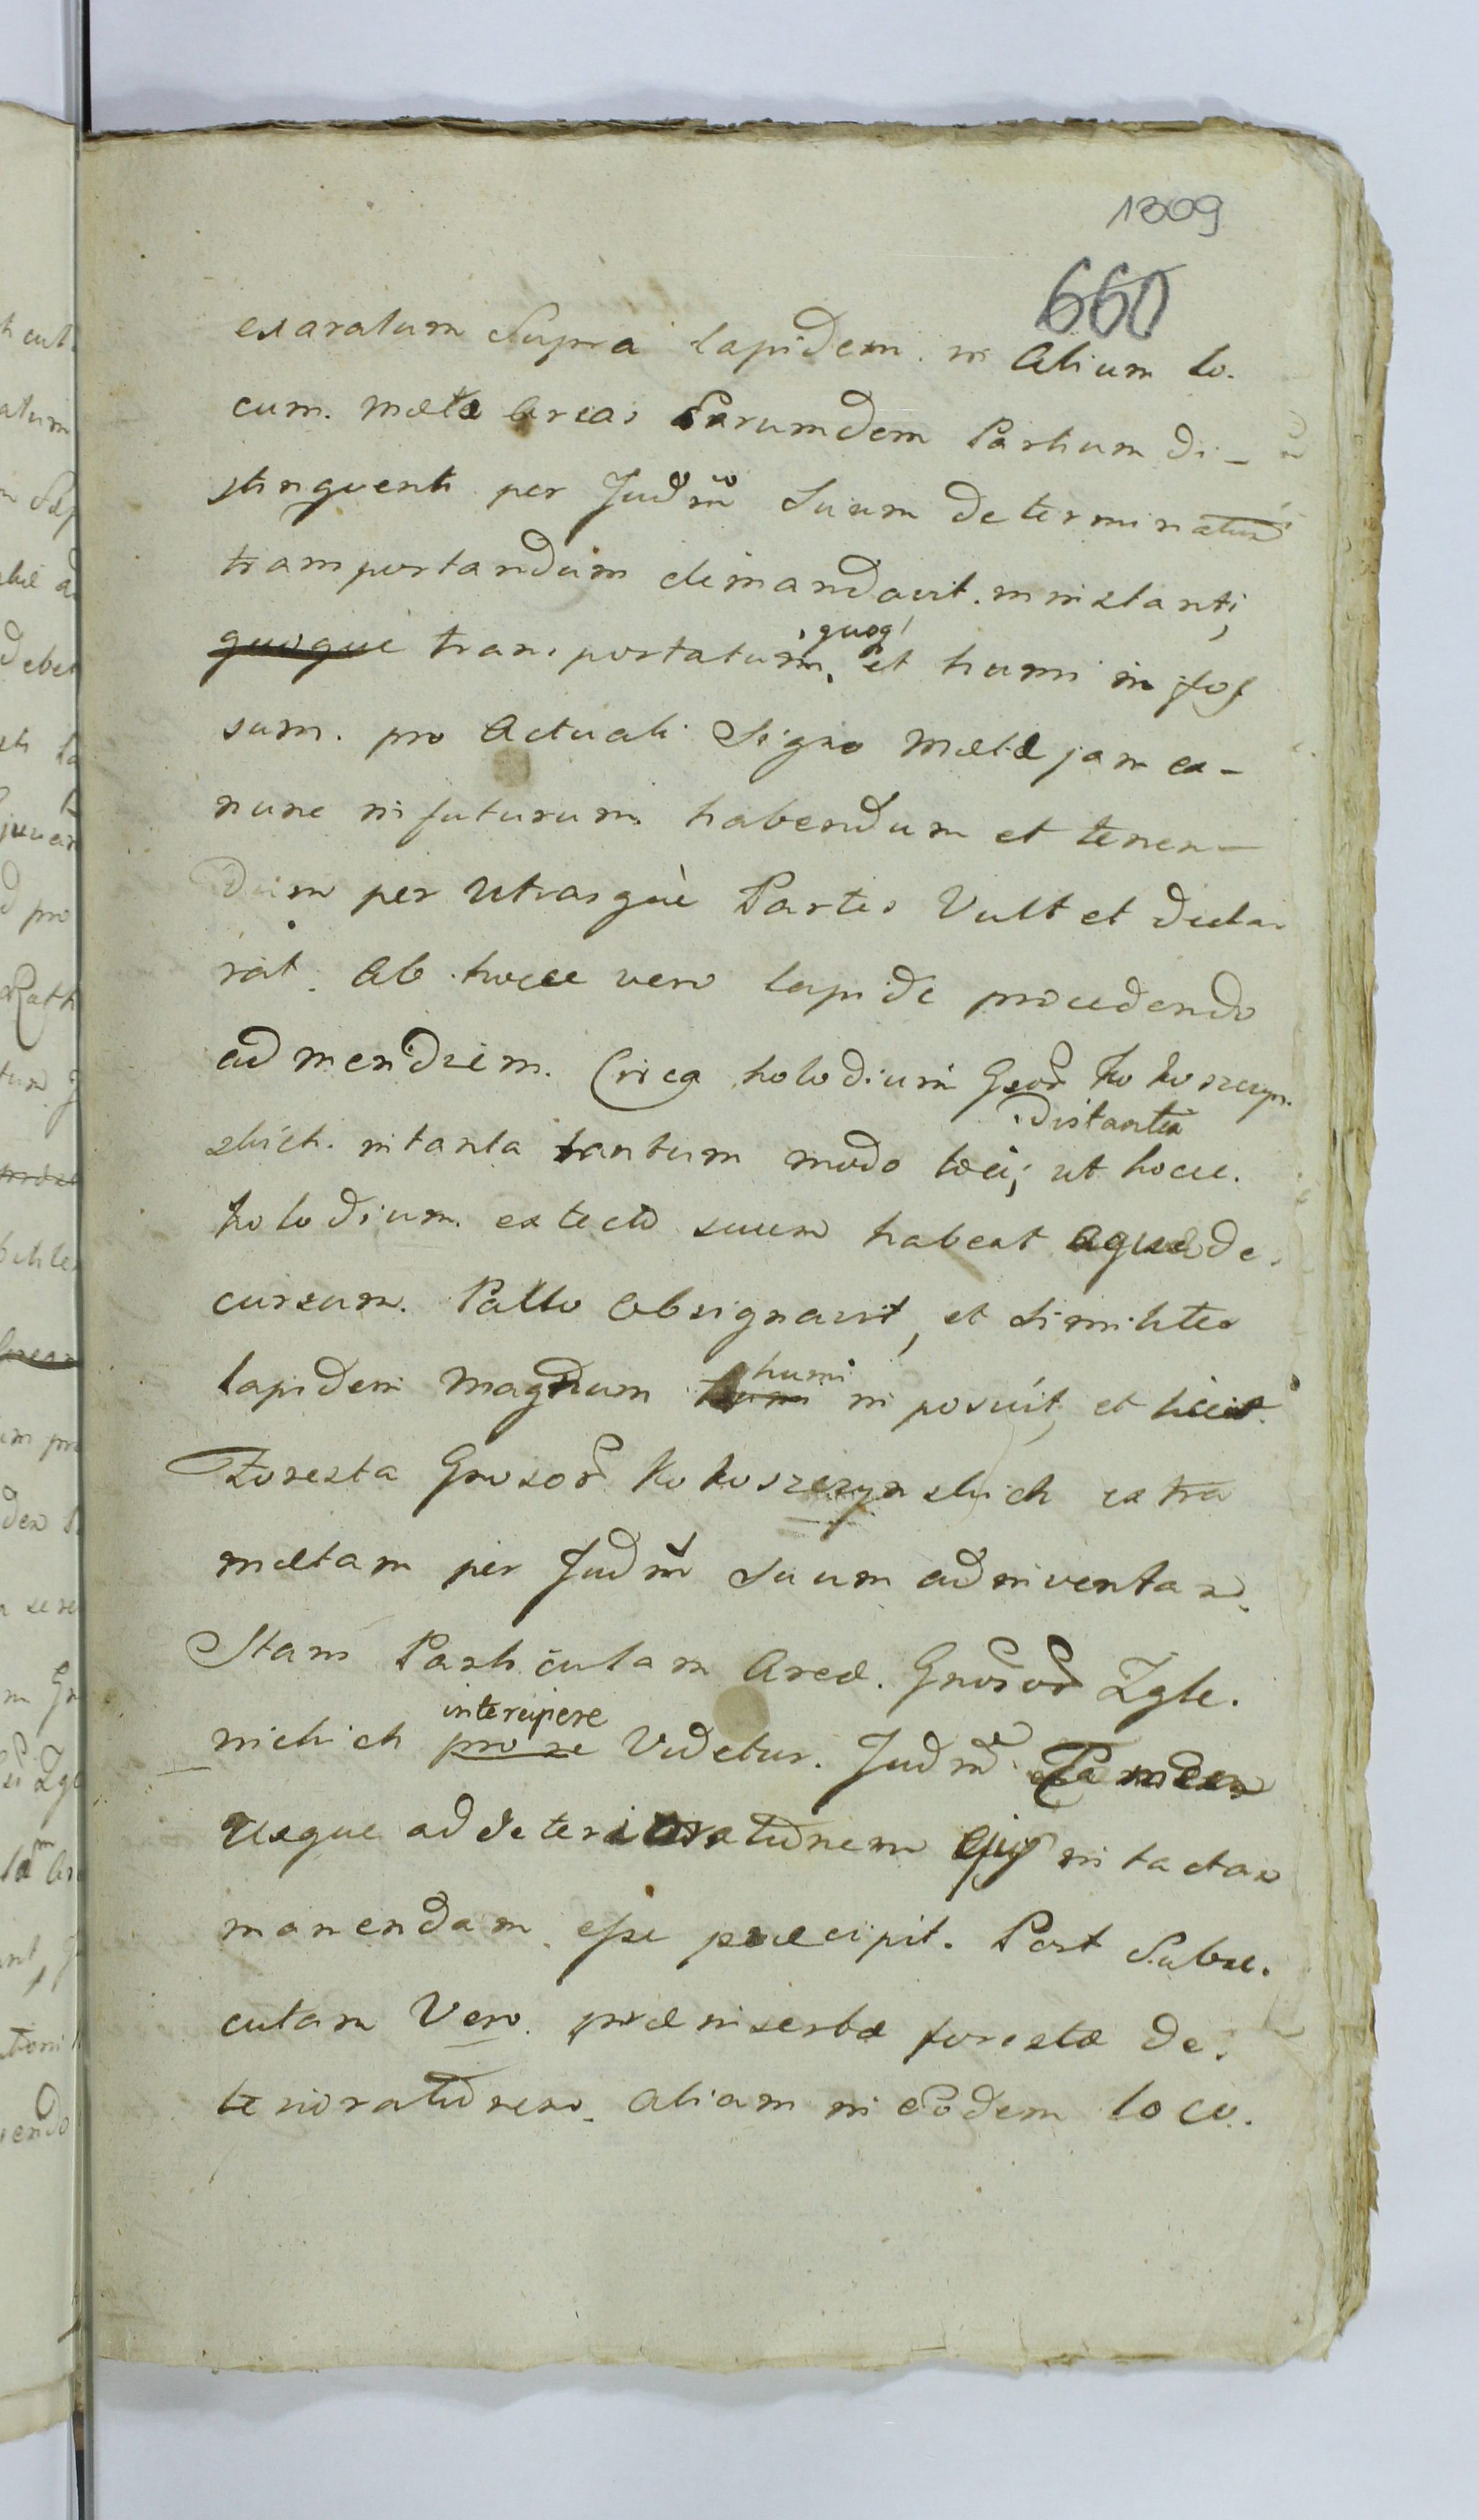 1309
660
exaratum Supra lapidem. in Alium lo.
cum. metæ Areas Earumdem Partium di-
stinguenti per Judm̃ Suum determinatum
transportandum demandavit. in instanti,
quoque transportatum, quoq et humi infos
sum. pro Actuali Signo metæ jam ex-
nunc in futurum. habendum et tenen-
dum per Utrasque Partes Vult et decla-
rat. Ab hocce vero lapide procedendo
ad meridiem. Circa holodium Gsor Kokoszczyn.
skich. in tanta tantum modo loci, distantia ut hocce.
holodium. ex tecto suum habeat aquæ de.
cursum. Pallo Obsignavit, et similiter
lapidem magnum humi humi imposuit, et licet.
Foresta Gnosor Kokoszczynskich extra
metam per Judm̃ Suum adinventam.
Stans Particulam Areæ. Gnosor Zgle.
nickich pro se intercipere Videtur. Judm̃ Tamen
usque ad deteriorationem ejus intactam
manendam esse præcipit. Post Subse.
cutam Vero. præinsertæ forestæ de.
teriorationem. aliam in eodem loco.